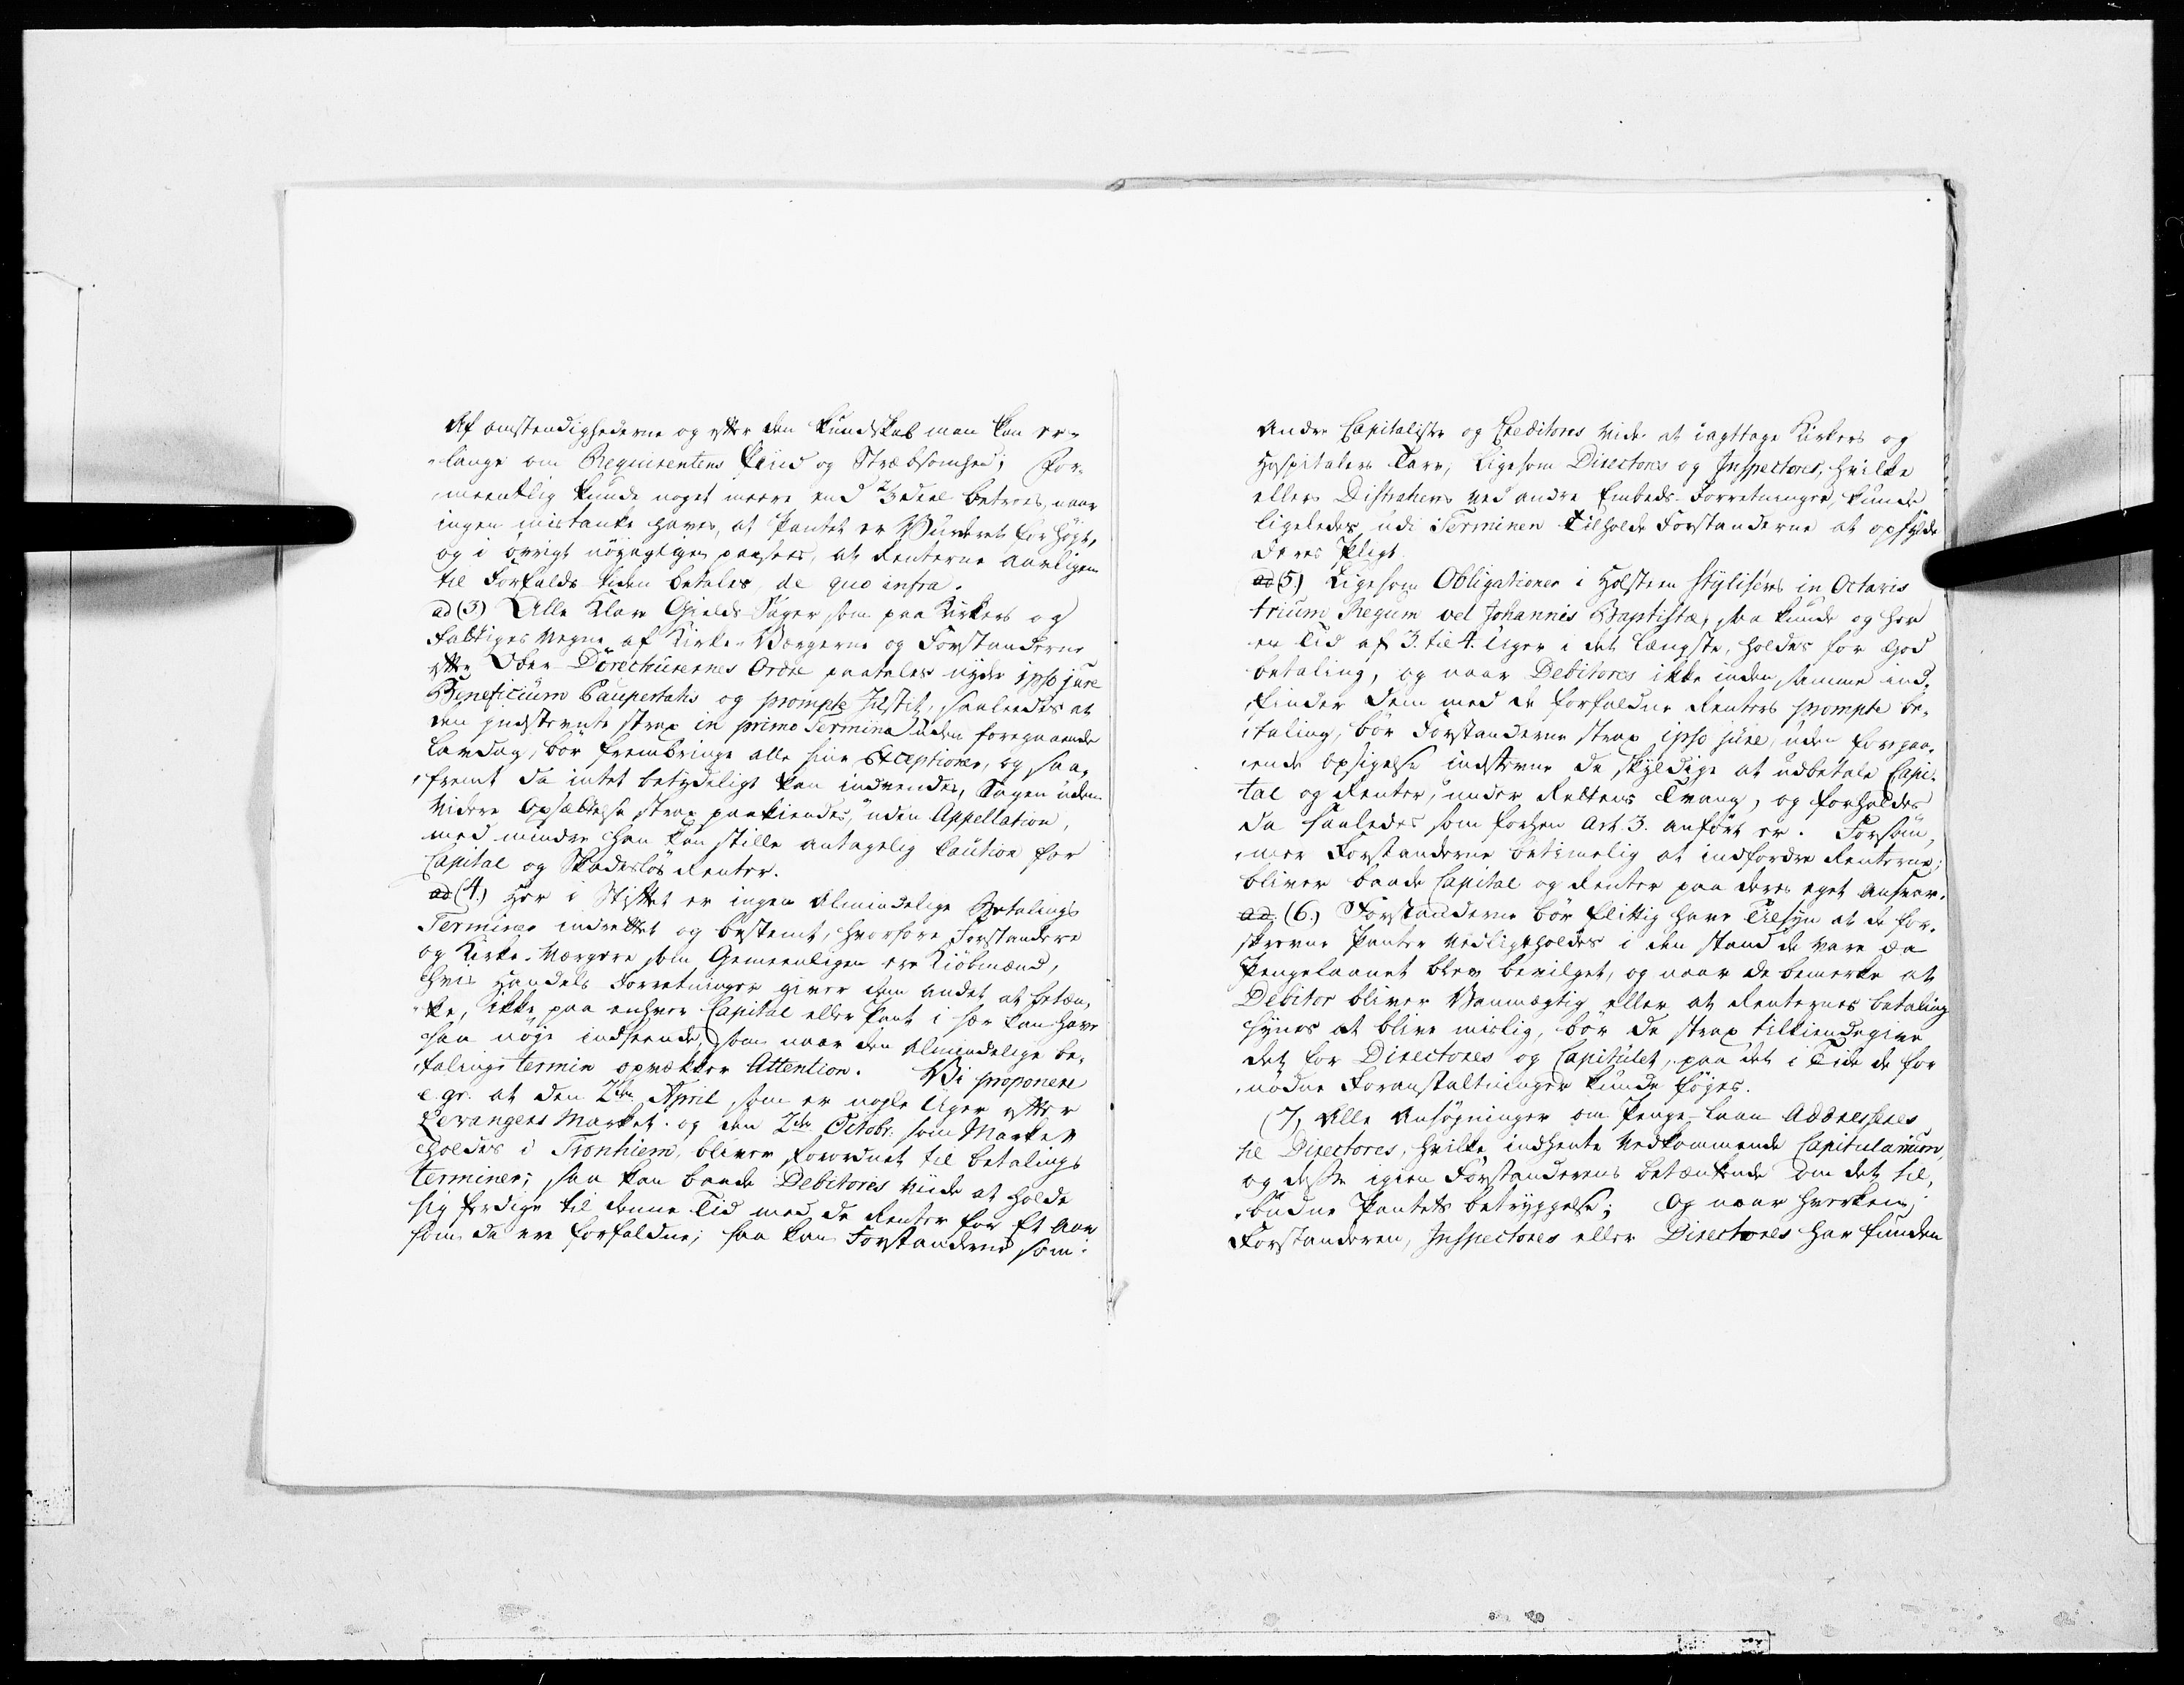 Af omstendighederne og efter den Kundskab man kan er-
lange om Requirentens Flid og Stræbsomhed; For-
meentlig kunde noget meere end 2/3 deel betroes, naar
ingen mistanke haves, at Pantet er Vurderet for høyt,
og i øvrigt nöyagtigen paasees, at Renterne aarligen
til Forfalds tiden betales, de quo infra.
ad (3) Alle Klare Gields Sager som paa Kirkers og
Fattiges vegne af Kirke-Værgerne og Forstanderne
efter Over Directeurernes Ordre paatales nyde ipso jure
Beneficium Paupertatis og prompte Justits, saaledes at
den indstevnte strax in primo Termino uden foregaaende
Lavdag, bør frembringe alle sine Exceptioner, og saa-
fremt da intet betydeligt kan indvendes, Sagen uden
videre Opsættelse strax paakiendes, uden Appellation,
med mindre han kan stille antagelig Caution for
Capital og Skadesløs Renter.
ad (4.) Her i Stiftet er ingen Almindelige Betalings
Terminer indrettet og bestemt, hvorfore Forstandere
og Kirke-Værgere som Gemeenligen ere Kiöbmænd,
hvis Handels Forretninger giver dem andet at betæn-
ke, ikke paa enhver Capital eller Pant i sær kan have
saa nöye indseende, som naar den Almindelige be-
talings termin opvækker Attention. Vi proponere
e. gr. at den 2den April, som er nogle Uger efter
Levangers Marked og den 2den Octobr. som Marked
holdes i Tronhiem, bliver forordnet til betalings
terminer; saa kan baade Debitores viide at holde
sig færdige til denne Tid med de Renter for Et Aar
som da ere forfaldne; saa kan Forstanderne som
Andre Capitalister og Creditores vide at iagttage Kirkers og
Hospitalers Tarv, Ligesom Directores og Inspectores, hvilke
ellers Distraheres ved andre Embeds-Forretninger, kunde
ligeledes udi Terminen tilholde Forstanderne at opfylde
deres Pligt.
ad (5) Ligesom Obligationer i Holsteen styliseres in Octavis
trium Regum vel Johannis Baptistæ, saa kunde og her
en Tid af 3. til 4. Uger i det Længste, holdes for God
betaling, og naar Debitores ikke inden samme ind-
finder dem med de forfaldne Renters prompte be-
taling, bør Forstanderne strax ipso jure, uden foregaa-
ende opsigelse indstevne de skyldige at udbetale Capi-
tal og Renter, under Rettens Tvang, og forholdes
da saaledes som forhen Art. 3. anført er. Forsöm-
mer Forstanderne betimelig at indfordre Renterne;
bliver baade Capital og Renter paa deres eget Ansvar.
ad (6.) Forstanderne bør flittig have Tilsyn at de for-
skrevne Panter vedligeholdes i den stand de vare da
Pengelaanet blev bevilget, og naar de bemerke at
Debitor bliver Vanmægtig eller at Renternes betaling
synes at blive mislig, bør de strax tilkiendegive
det for Directores og Capitulet, paa det i Tide de for
nødne Foranstaltninger kunde föyes.
(7, Alle Ansøgninger om Penge-Laan Addresseres
til Directores, hvilke indhente Vedkommende Capitularium,
og disse igien Forstanderens betænkende om det til-
budne Pantets betryggelse; Og naar hverken
Forstanderen, Inspectores eller Directores har funden